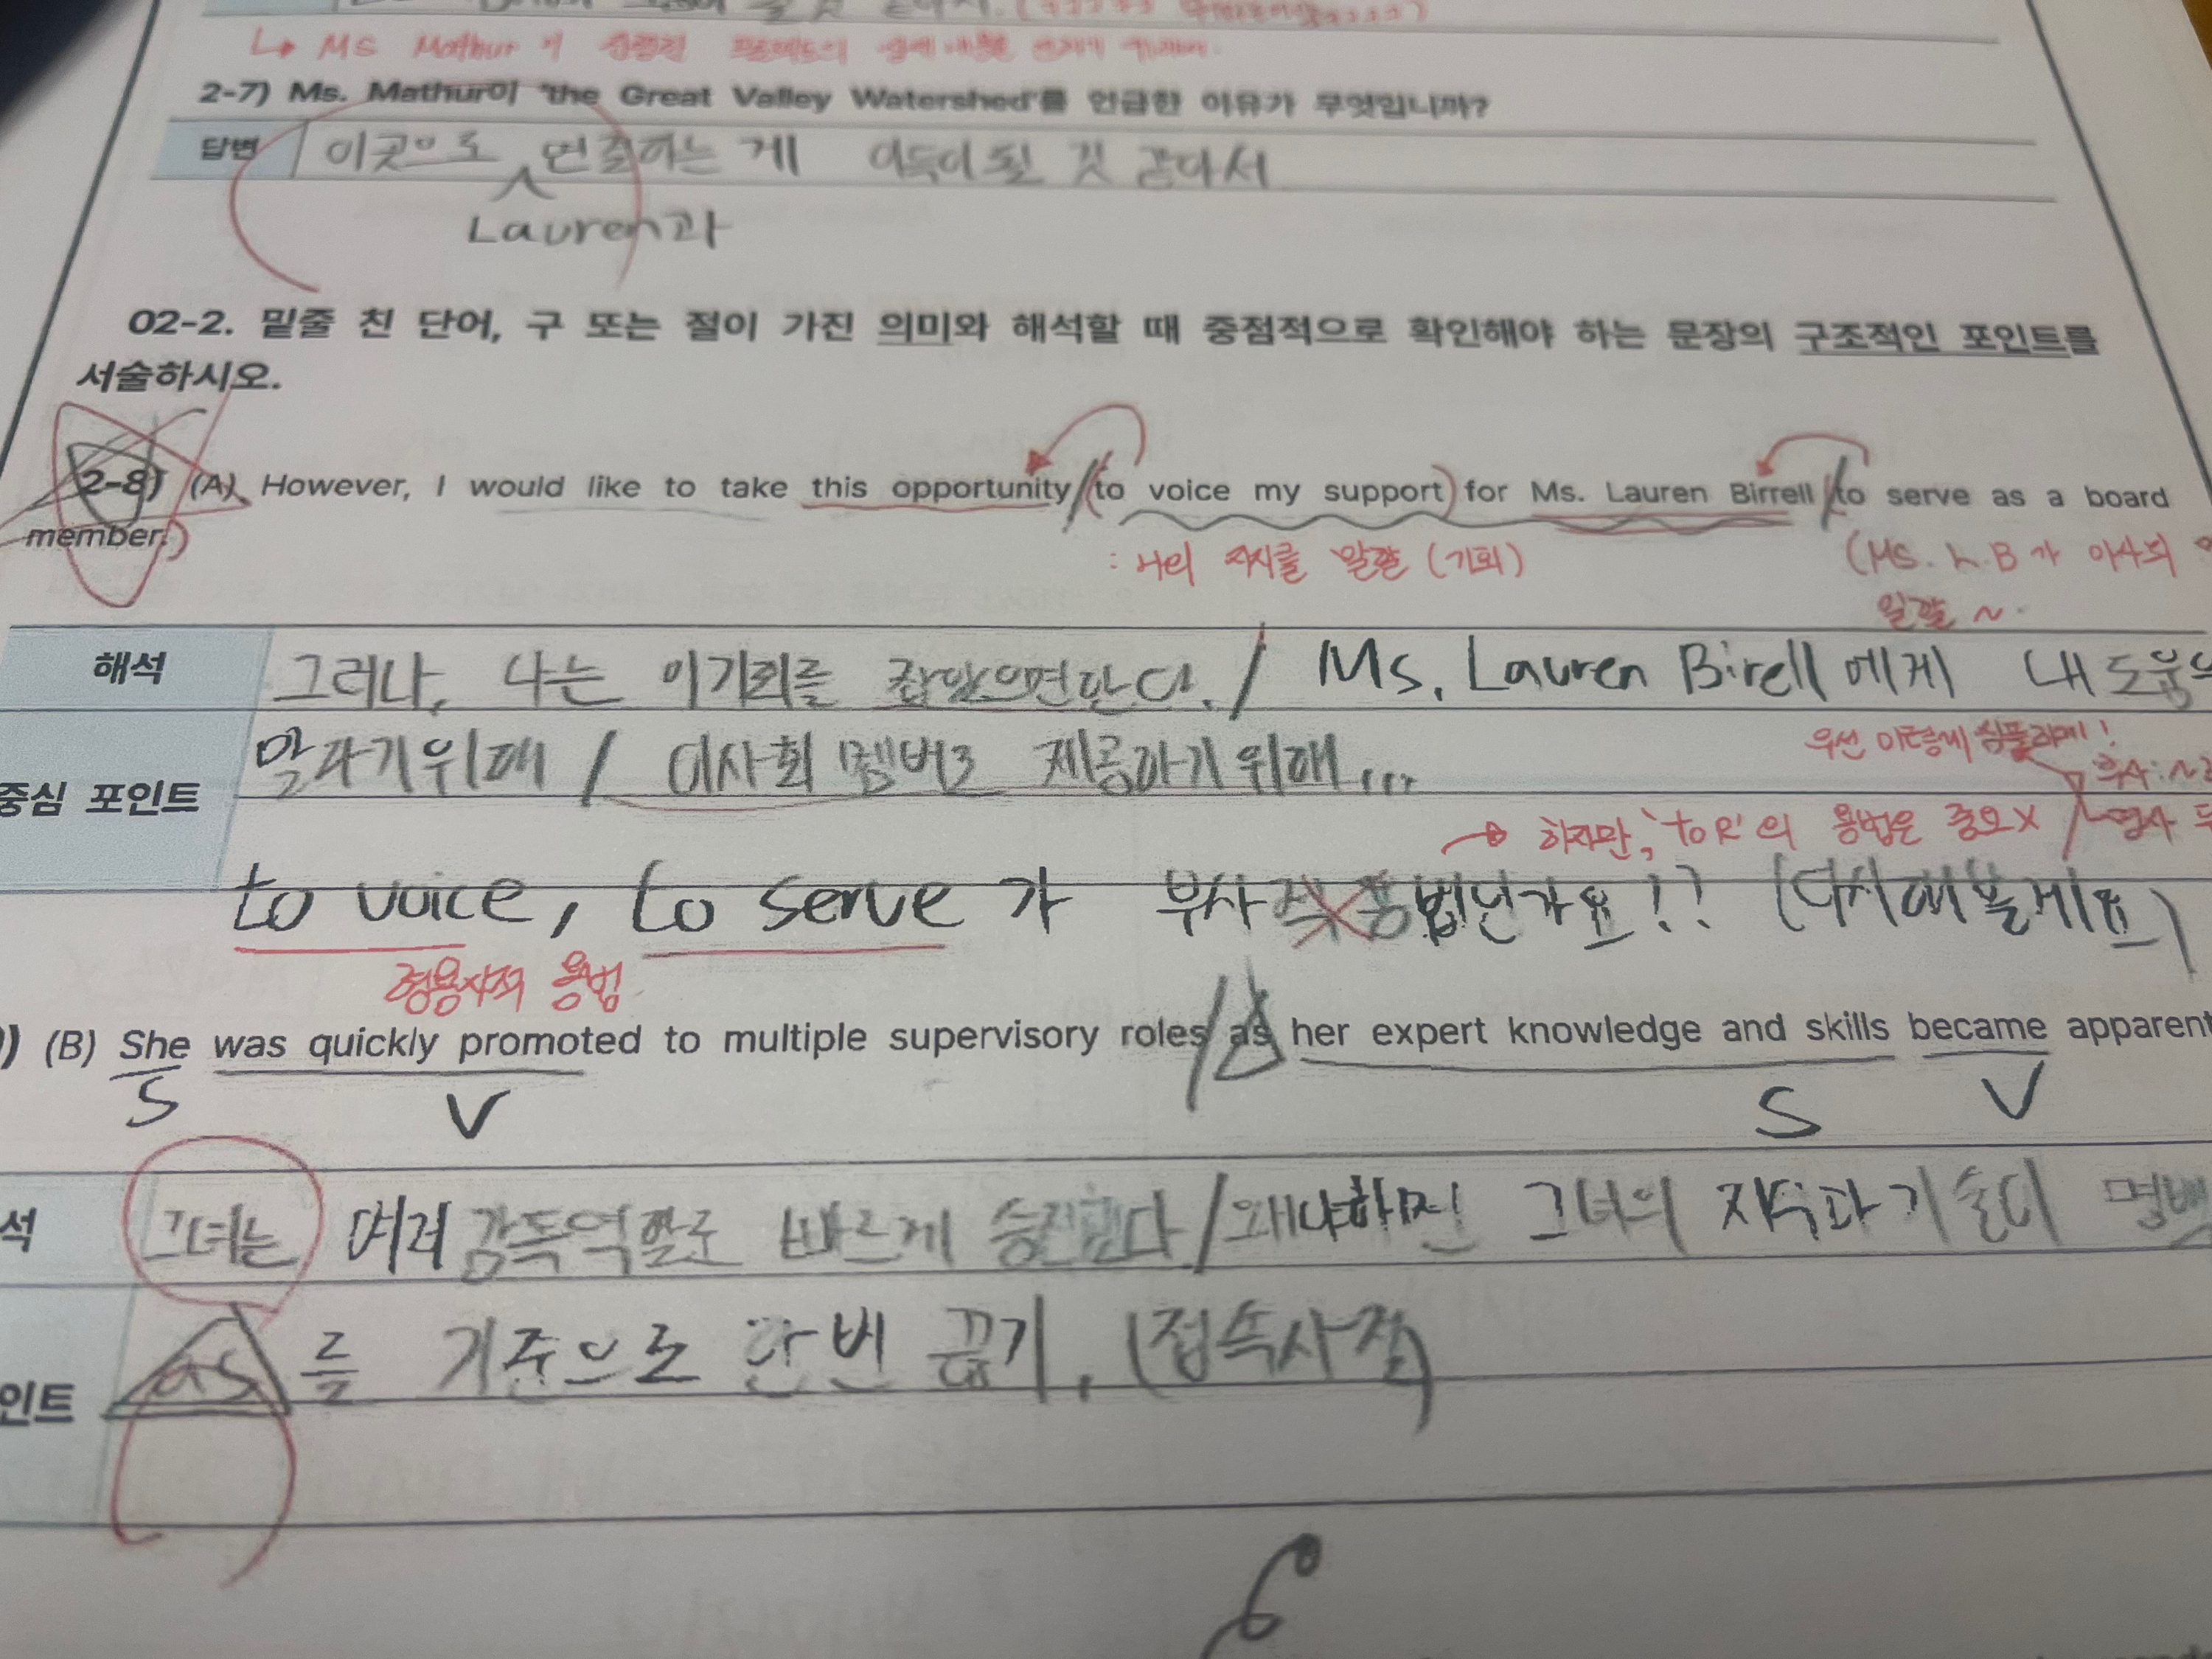 ↳ MS Mathur 이
2-7) Ms. Mathur이 'the Great Valley Watershed'를 언급한 이유가 무엇입니까?
답변 이곳으로 연결하는 게 이득이 될 것 같아서
Lauren과
02-2. 밑줄 친 단어, 구 또는 절이 가진 의미와 해석할 때 중점적으로 확인해야 하는 문장의 구조적인 포인트를
서술하시오.
2-8) (A) However, I would like to take this opportunity to voice my support for Ms. Lauren Birrell to serve as a board
member.
: 나의 지지를 말할 (기회)
(Ms. L.B 가 이사회
일할 ~
해석 그러나, 나는 이 기회를 잡았으면한다. / Ms. Lauren Birell 에게 내 도움
말하기위해 / 이사회 멤버로 제공하기 위해...
우선 이렇게 심플하게!
부사:
중심 포인트
→ 하지만, 'to R'의 용법은 중요X
명사
to voice, to serve 가 부사적 용법인가요!? (다시해볼게요)
형용사적 용법
) (B) She was quickly promoted to multiple supervisory roles as her expert knowledge and skills became apparent
S V S V
석 그녀는 여러 감독역할로 빠르게 승진했다 / 왜냐하면 그녀의 지식과 기술이 명백
인트 as 를 기준으로 한번 끊기. (접속사절)